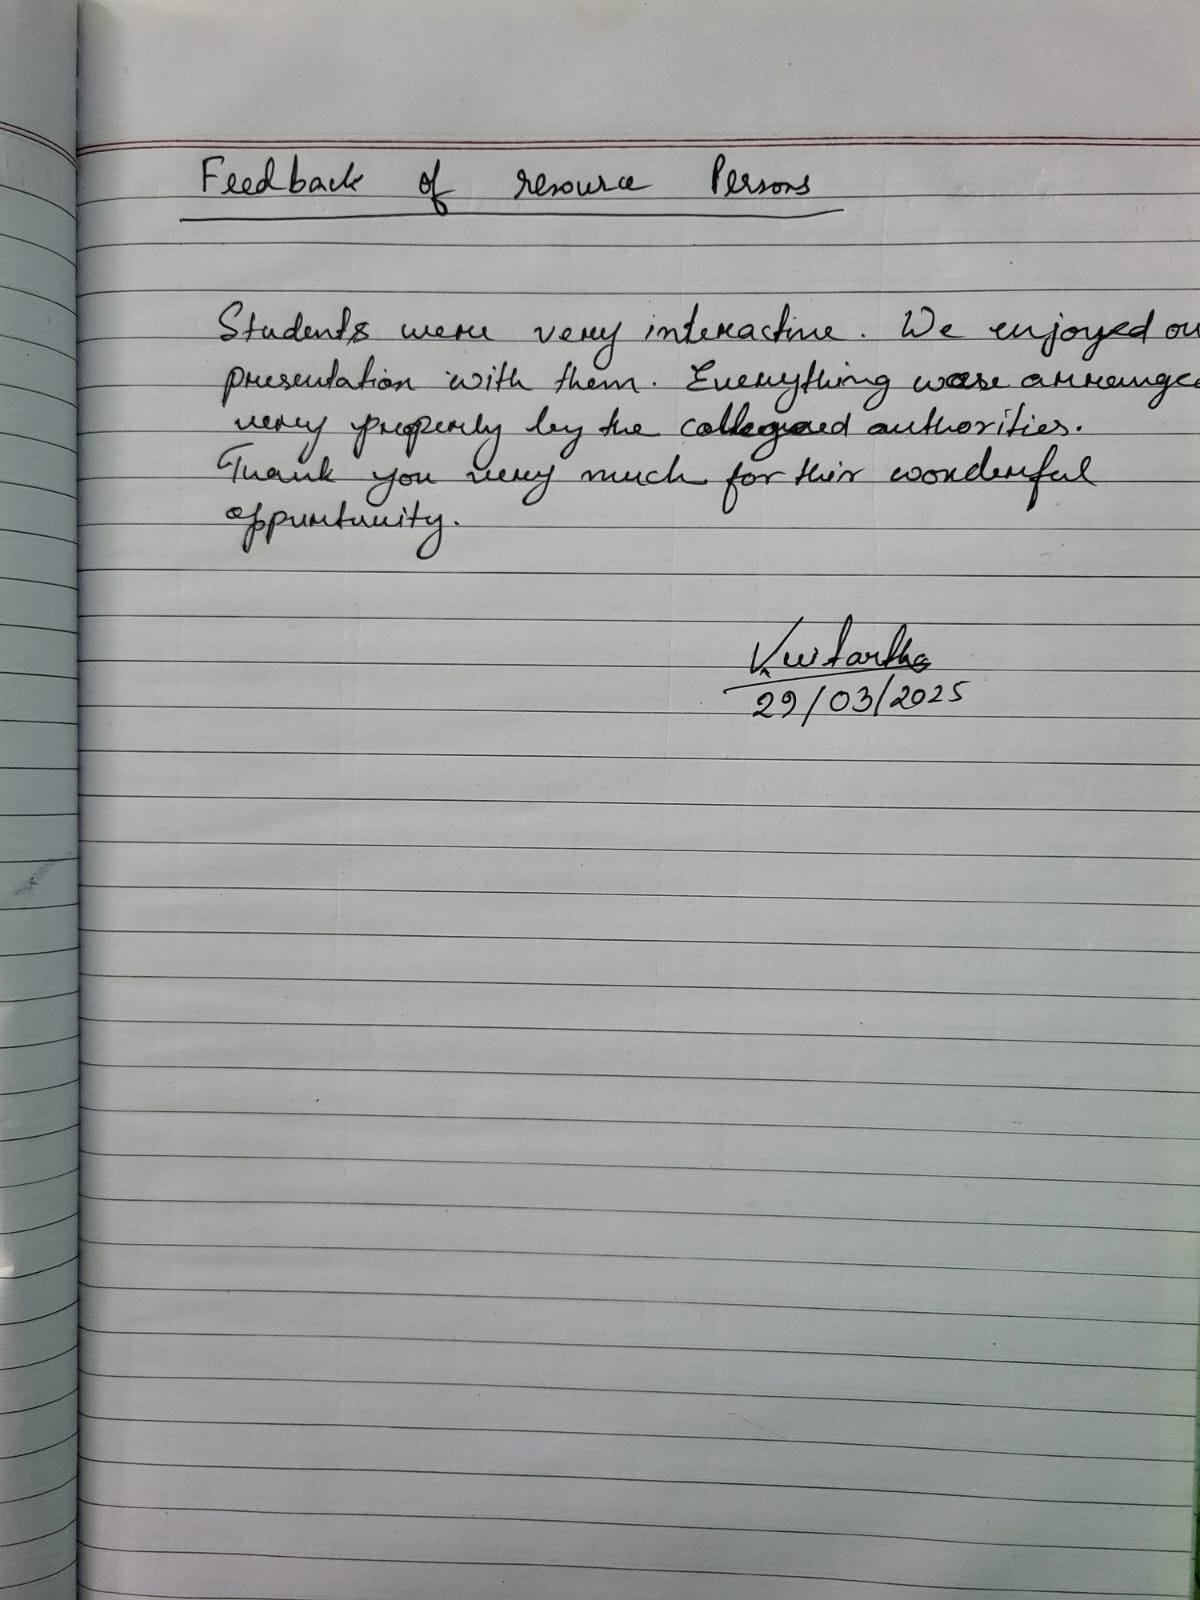 Feedback of resource Persons
Students were very interactive. We enjoyed ou
presentation with them. Everything was arrange
very properly by the college authorities.
Thank you very much for this wonderful
oppurtunity.
29/03/2025